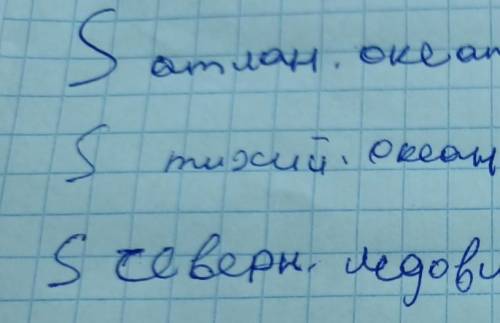 S атлан. океан
S тихий. океан
S северн. ледови